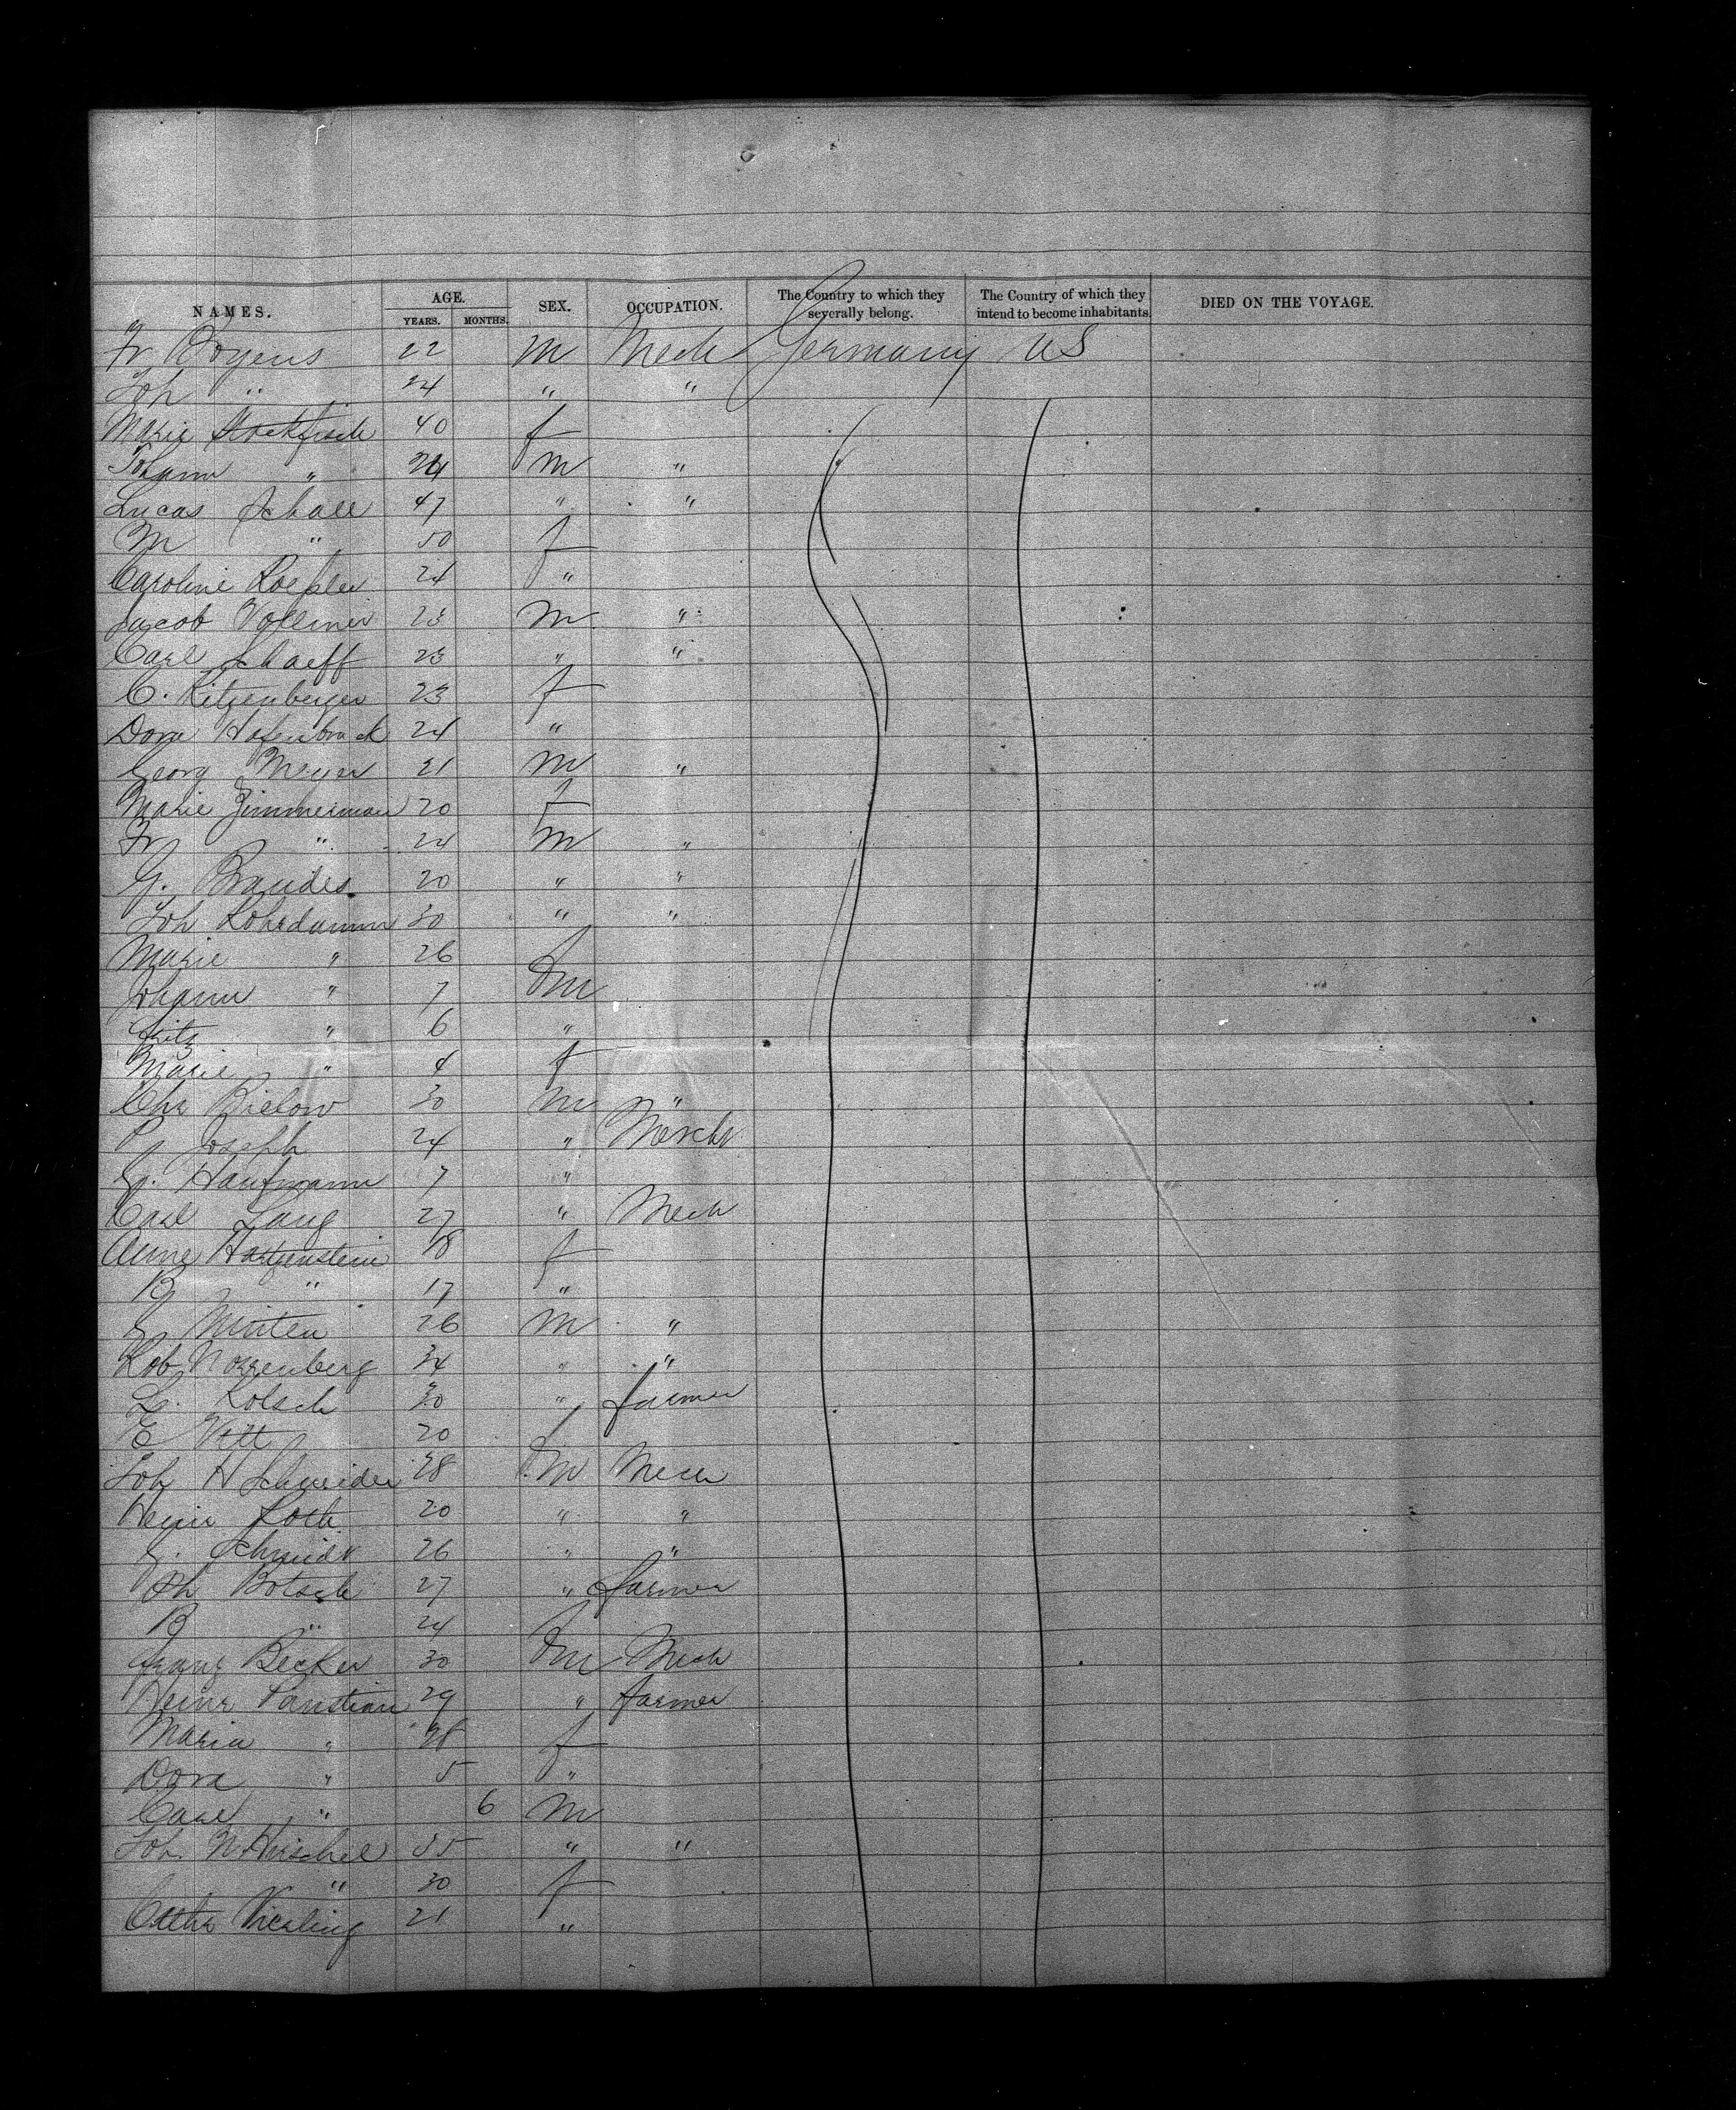 NAMES. AGE. YEARS. MONTHS. SEX. OCCUPATION. The Country to which they severally belong. The Country of which they intend to become inhabitants. DIED ON THE VOYAGE.
Fr Boyens 22 m Mech Germany US
Joh " 24 " "
Marie Stockfisch 40 f
Johann " 24 m "
Lucas Schall 47 " "
M " 50 f
Caroline 24 "
Jacob Vollmer 23 m "
Carl Schaeff 23 " "
C. Kitzenberger 23 f
Dora Hafenbrack 24 "
Georg Meyer 21 m "
Marie Zimmerman 20 f
Fr " 24 m "
G. Brandes 20 " "
Joh Rohrdamm 30 " "
Marie " 26 f
Johann " 7 m
Fritz " 6 "
Marie " 4 f
Chr Bielow 30 m "
Joseph 24 " Merch
G. Haufmann 7 "
Carl Lang 27 " Mech
Anna Hatzenstein 18 f
B " 17 "
Minten 26 m "
Rob Norrenberg 34 " "
L. Kolsch 30 " farmer
E Vott 20 f
Joh H Schneider 28 m Mech
Heinr Roth 20 " "
G. Schmidt 26 " "
Ph Botsch 27 " farmer
B " 24 f
Franz Becker 30 m Mech
Heinr Panstian 29 " farmer
Maria " 28 f
Dora " 5 "
Carl " 6 m
Joh. N Hirschel 35 " "
" 30 f
Cathr Viesling 21 "